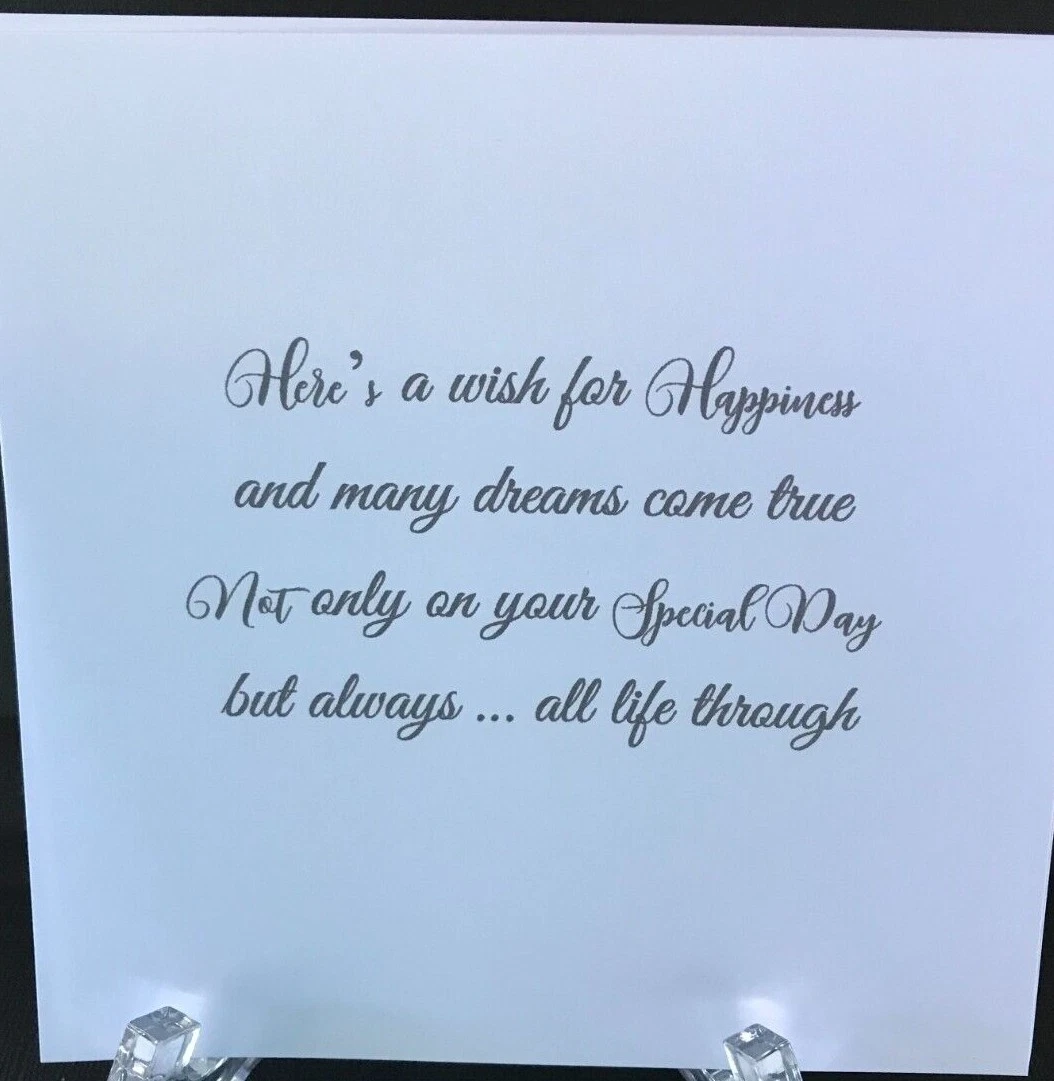 Here's a wish for Happiness
and many dreams come true
Not only on your Special Day
but always ... all life through